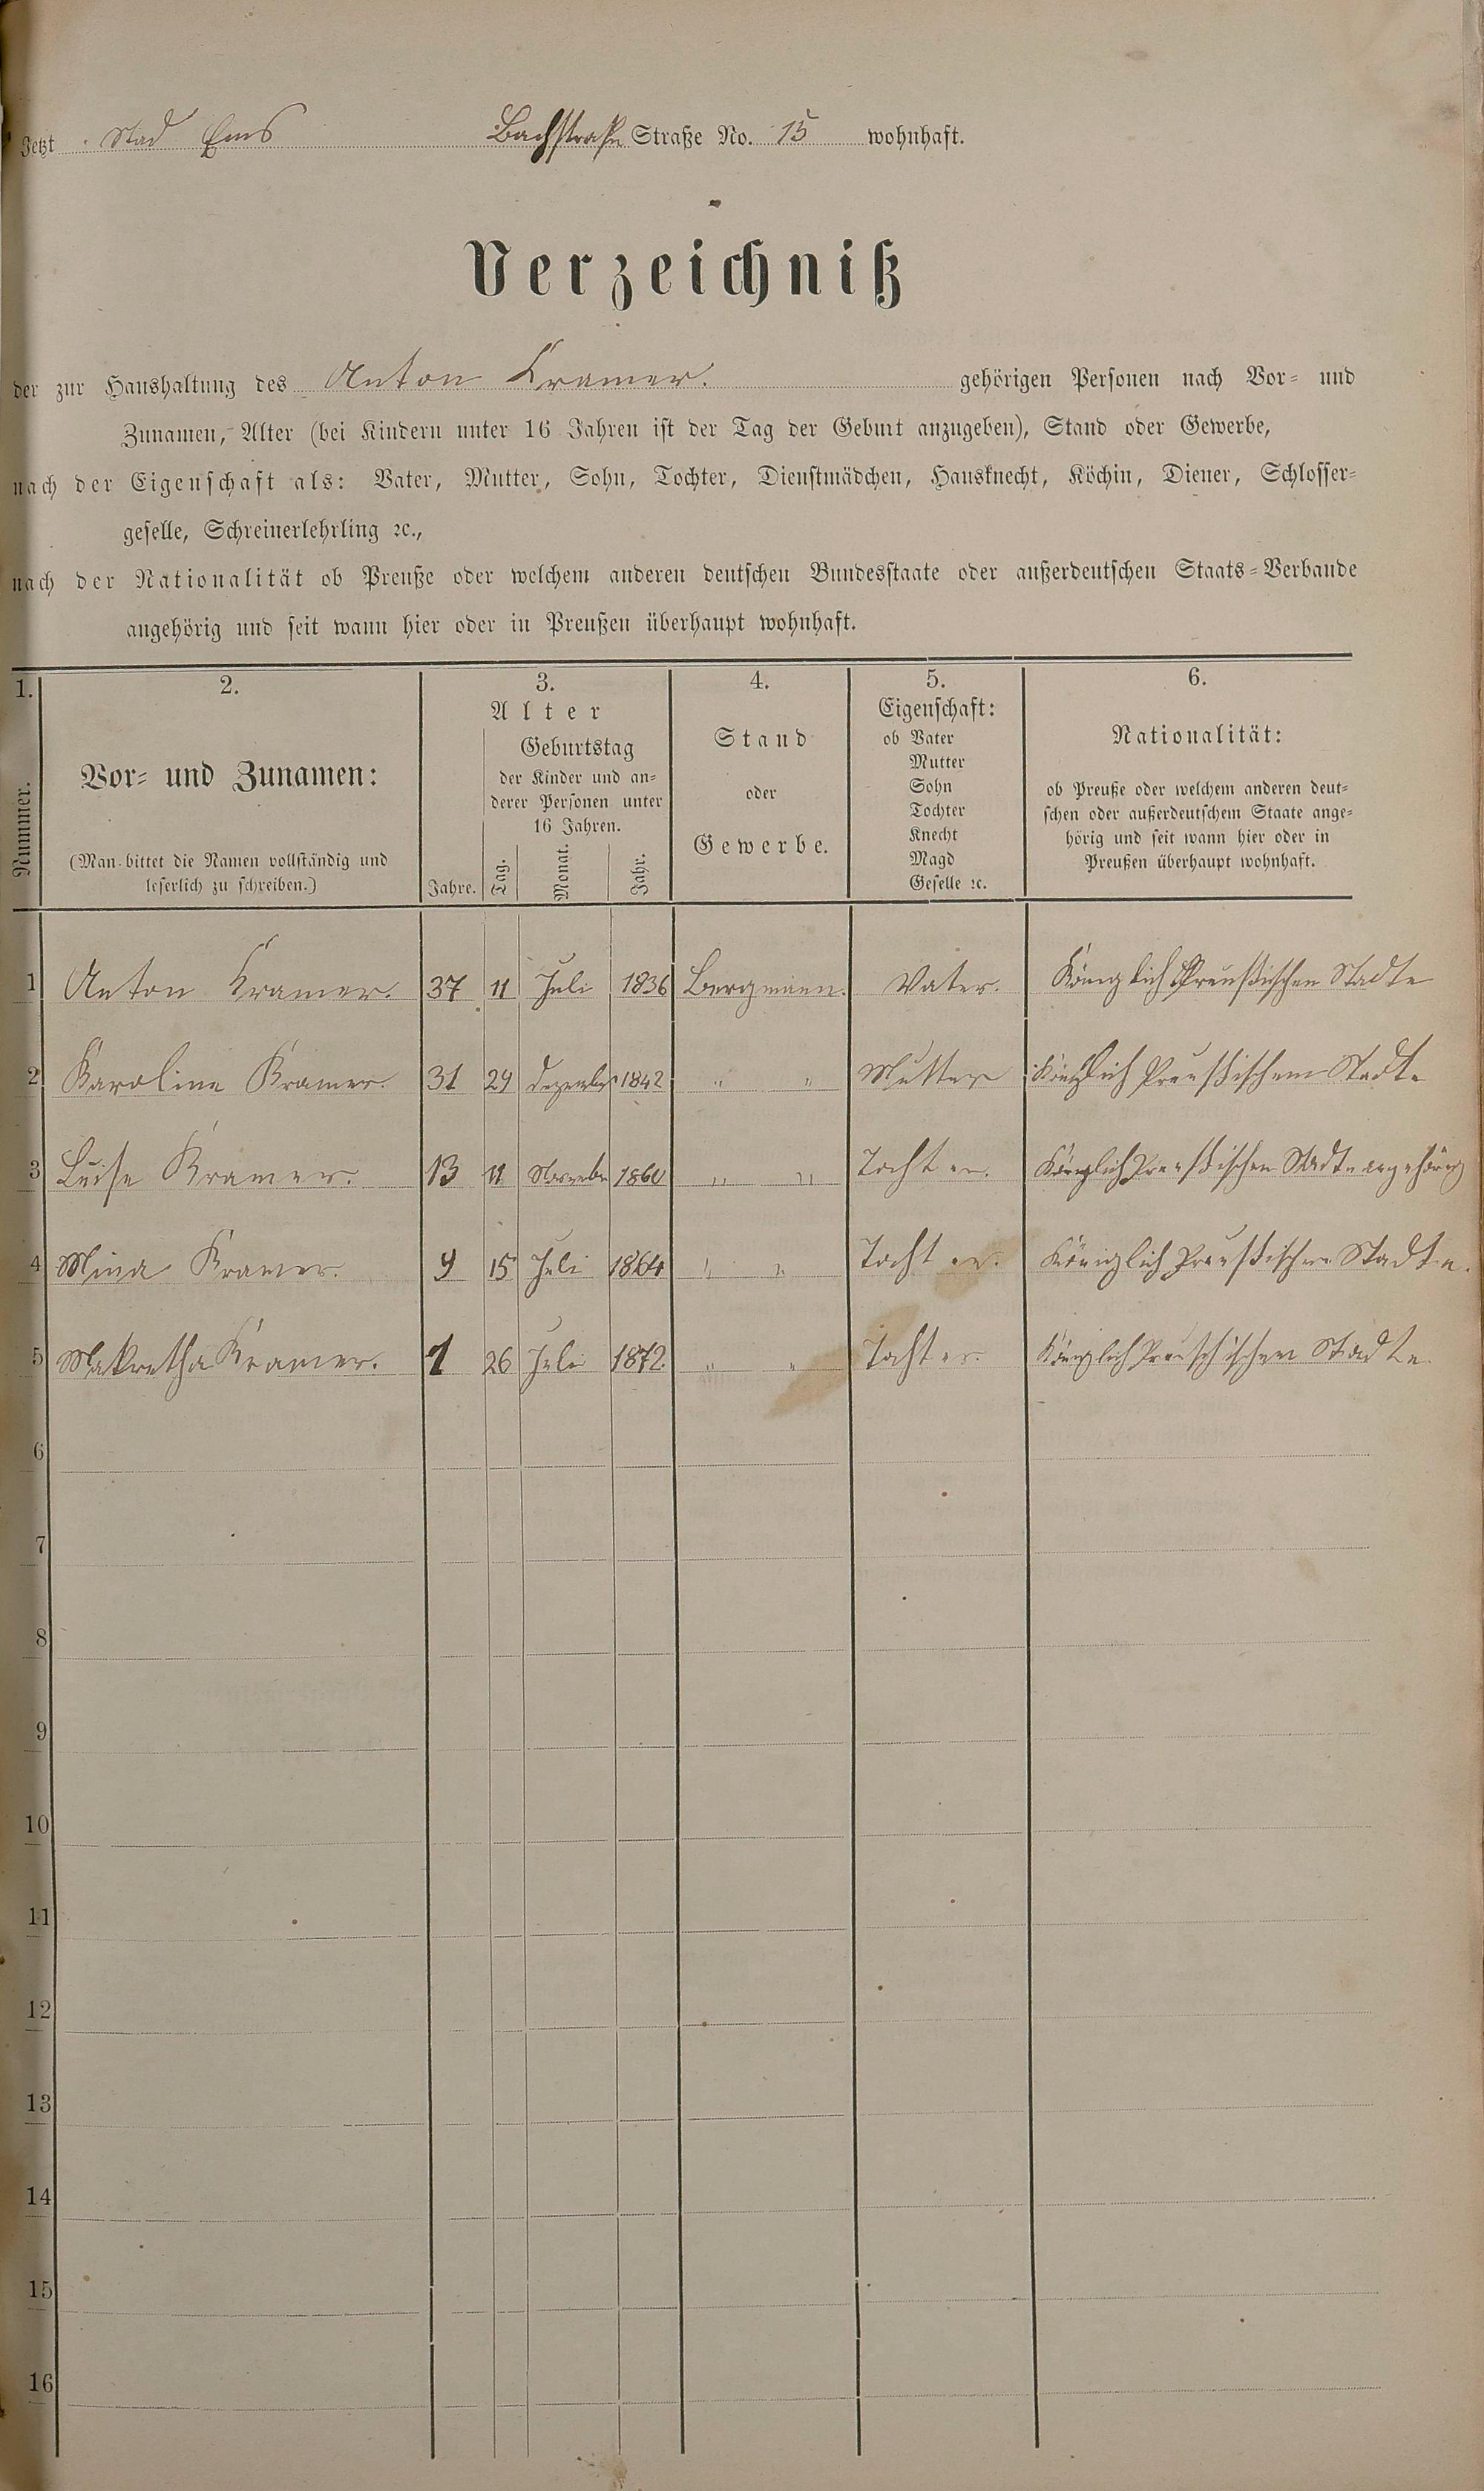 Jetzt Stad Ems Bachstraße Straße No. 15 wohnhaft.
Verzeichniß
der zur Haushaltung des Anton Kramer. gehörigen Personen nach Vor- und
Zunamen, Alter (bei Kindern unter 16 Jahren ist der Tag der Geburt anzugeben), Stand oder Gewerbe,
nach der Eigenschaft als: Vater, Mutter, Sohn, Tochter, Dienstmädchen, Hausknecht, Köchin, Diener, Schlosser-
geselle, Schreinerlehrling ꝛc.,
nach der Nationalität ob Preuße oder welchem anderen deutschen Bundesstaate oder außerdeutschen Staats-Verbande
angehörig und seit wann hier oder in Preußen überhaupt wohnhaft.
1. 2. 3. 4. 5. 6.
Nummer.
Vor- und Zunamen:
(Man bittet die Namen vollständig und
leserlich zu schreiben.)
Alter
Geburtstag
der Kinder und an-
derer Personen unter
16 Jahren.
Jahre. Tag. Monat. Jahr.
Stand
oder
Gewerbe.
Eigenschaft:
ob Vater
Mutter
Sohn
Tochter
Knecht
Magd
Geselle ꝛc.
Nationalität:
ob Preuße oder welchem anderen deut-
schen oder außerdeutschem Staate ange-
hörig und seit wann hier oder in
Preußen überhaupt wohnhaft.
1 Anton Kramer. 37 11 Juli 1836 Bergmann. Vater. Königlich Preußischen Stadte
2 Karoline Kramer. 31 29 Dezember 1842 " " Mutter Königlich Preußischem Stadte
3 Luise Kramer. 13 11 November 1860 " " Tochter. Königlich Preußischen Stadte angehörig
4 Mina Kramer. 9 15 Juli 1864 " " Tochter. Königlich Preußischen Stadte.
5 Makretha Kramer. 1 26 Juli 1872. " " Tochter. Königlich Preuschischen Stadte.
6
7
8
9
10
11
12
13
14
15
16